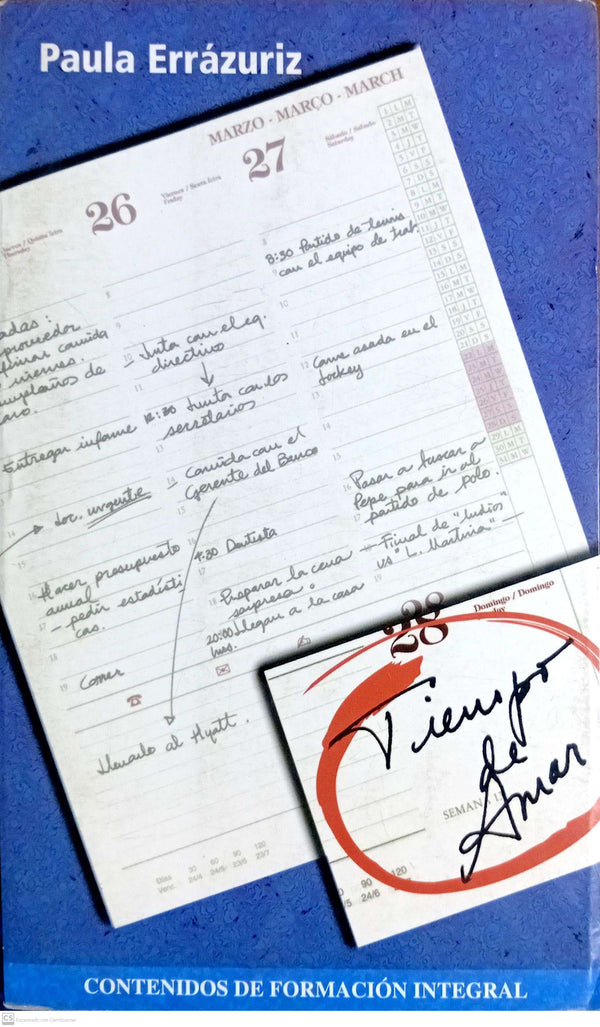 Paula Errázuriz
MARZO - MARÇO - MARCH
26
Viernes / Sexta feira
Friday
27
Sábado / Sábado
Saturday
Thursday
8:30 Partido de tennis
con el equipo de
proveedor
comida
viernes.
10 - Junta con el eq.
directivo
11
12 Carne asada en el
Jockey
Entregar informe
12:30 Junta con los
secretarios
13
14 - Comida con el
Gerente del Banco
15
Doc. urgente
16 Pasar a buscar a
Pepe para ir al
17 partido de polo.
- Final de "Indios"
vs "L. Martina" -
4:30 Dentista
17
16 Hacer presupuesto
anual
17 - pedir estadísti
cas.
18 Preparar la cena
sorpresa.
20:00 Llegan a la casa
hrs.
19 Comer
Llevarlo al Hyatt.
Días 30 60 90 120
Venc. 24/4 24/5 23/6 23/7
28
Domingo / Domingo
Tiempo
de
Amar
90 120
24/6
CONTENIDOS DE FORMACIÓN INTEGRAL
CS Escaneado con CamScanner